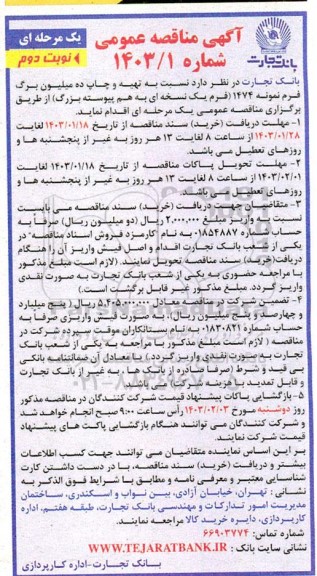 آگهی مناقصه عمومی
شماره ۱۴۰۳/۱
یک مرحله ای
نوبت دوم
بانک تجارت
بانک تجارت در نظر دارد نسبت به تهیه و چاپ ده میلیون برگ
فرم نمونه ۱۴۷۴ (فرم یک نسخه ای به هم پیوسته بزرگ) از طریق
برگزاری مناقصه عمومی یک مرحله ای اقدام نماید.
۱- مهلت دریافت (خرید) سند مناقصه از تاریخ ۱۴۰۳/۰۱/۱۸ لغایت
۱۴۰۳/۰۱/۲۸ از ساعت ۸ لغایت ۱۳ هر روز به غیر از پنجشنبه ها و
روزهای تعطیل می باشد.
۲- مهلت تحویل پاکات مناقصه از تاریخ ۱۴۰۳/۰۱/۱۸ لغایت
۱۴۰۳/۰۲/۰۱ از ساعت ۸ لغایت ۱۳ هر روز به غیر از پنجشنبه ها و
روزهای تعطیل می باشد.
۳- متقاضیان جهت دریافت (خرید) سند مناقصه می بایست
نسبت به واریز مبلغ ۲,۰۰۰,۰۰۰ ریال (دو میلیون ریال) صرفاً به
حساب شماره ۰۱۸۵۴۸۸۷ به نام "کارمزد فروش اسناد مناقصه" در
یکی از شعب بانک تجارت اقدام و اصل فیش واریز آن را هنگام
دریافت (خرید) سند مناقصه تحویل نمایند. (لازم است مبلغ مذکور
با مراجعه حضوری به یکی از شعب بانک تجارت به صورت نقدی
واریز گردد. مبلغ مذکور غیر قابل برگشت است.)
۴- تضمین شرکت در مناقصه معادل ۵,۴۰۵,۰۰۰,۰۰۰ ریال (پنج میلیارد
و چهارصد و پنج میلیون ریال)، اصل فیش واریزی صرفاً به
حساب شماره ۰۱۸۳۰۸۲۱ به نام بستانکاران موقت سپرده شرکت در
مناقصه ( لازم است مبلغ مذکور با مراجعه به یکی از شعب بانک
تجارت به صورت نقدی واریز گردد.) یا معادل آن ضمانتنامه بانکی
بی قید و شرط (صرفا صادره از بانک ها، به غیر از بانک تجارت
و قابل تمدید با هزینه
۵- بازگشایی پاکات پیشنهاد قیمت شرکت کنندگان در مناقصه مذکور
روز دوشنبه مورخ ۱۴۰۳/۰۲/۰۳ رأس ساعت ۹:۰۰ صبح انجام خواهد شد
و شرکت کنندگان می توانند هنگام بازگشایی پاکت های پیشنهاد
قیمت شرکت نمایند.
بر این اساس نماینده متقاضیان می توانند جهت کسب اطلاعات
بیشتر و دریافت (خرید) سند مناقصه، با در دست داشتن کارت
شناسایی معتبر و معرفی نامه و مطابق با شرایط فوق الذکر به
نشانی : تهران، خیابان آزادی، بین نواب و اسکندری، ساختمان
مدیریت امور تدارکات و مهندسی بانک تجارت، طبقه هفتم، اداره
کارپردازی، دایره خرید کالا مراجعه نمایند.
شماره تماس: ۶۶۹۰۳۷۷۴
نشانی سایت بانک : WWW.TEJARATBANK.IR
بانک تجارت-اداره کارپردازی